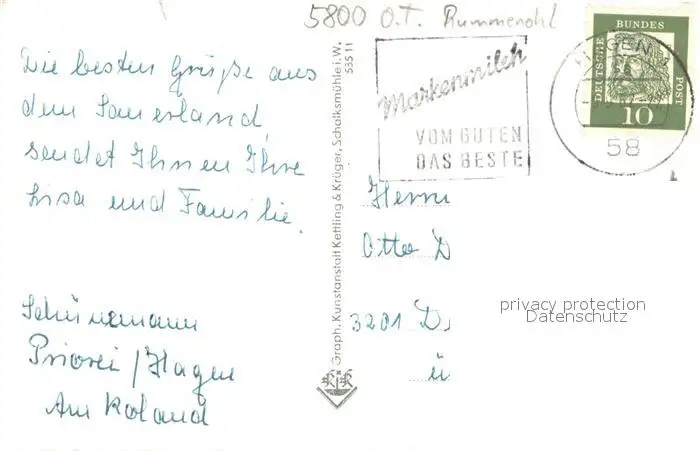 5800 O.T. Rummenohl
Die besten Grüße aus
dem Sauerland,
sendet Ihnen Ihre
Lisa und Familie.
Schünemann
Priorei / Hagen
Am Roland
Graph. Kunstanstalt Kettling & Krüger, Schalksmühle i. W.
535 11
KRK
Markenmilch
VOM GUTEN
DAS BESTE
HAGEN
58
DEUTSCHE BUNDES POST
10
Herrn
Otto D
3201 D
ü
privacy protection
Datenschutz